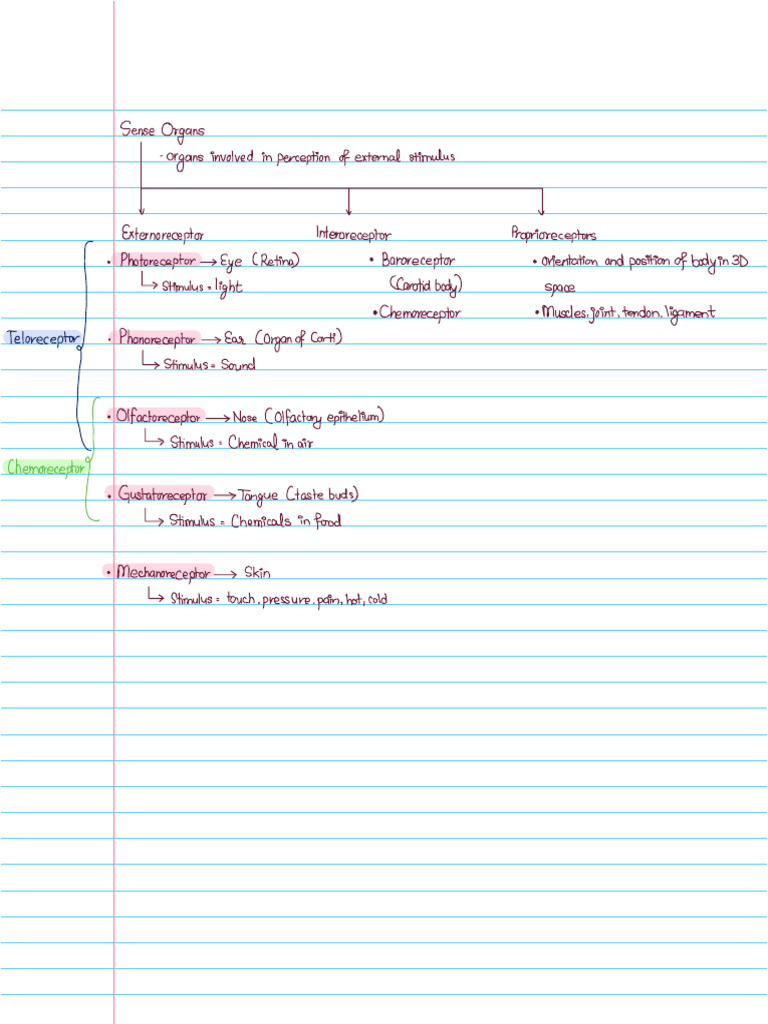 Sense Organs
- organs involved in perception of external stimulus
Externoreceptor Interoreceptor Proprioreceptors
• Photoreceptor → Eye (Retina)
↳ Stimulus = light
• Baroreceptor
(Carotid body)
• Chemoreceptor
• Orientation and position of body in 3D
space
• Muscles, joint, tendon, ligament
Teloreceptor
• Phonoreceptor → Ear (Organ of Corti)
↳ Stimulus = Sound
• Olfactoreceptor → Nose (Olfactory epithelium)
↳ Stimulus = Chemical in air
Chemoreceptor
• Gustatoreceptor → Tongue (taste buds)
↳ Stimulus = Chemicals in food
• Mechanoreceptor → Skin
↳ Stimulus = touch, pressure, pain, hot, cold